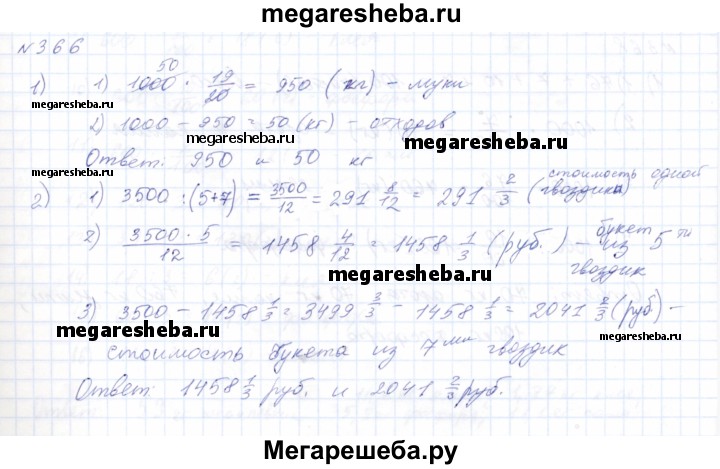 megaresheba.ru
№366
1) 1) 1000 50 · 19/20 = 950 (кг) – муки
megaresheba.ru
megaresheba.ru
2) 1000 – 950 = 50 (кг) – отходов
megaresheba.ru
megaresheba.ru
Ответ: 950 и 50 кг
megaresheba.ru
2) 1) 3500 : (5+7) = 3500/12 = 291 8/12 = 291 2/3 (стоимость одной гвоздики)
2) 3500 · 5/12 = 1458 4/12 = 1458 1/3 (руб.) – букет из 5ти гвоздик
megaresheba.ru
3) 3500 – 1458 1/3 = 3499 3/3 – 1458 1/3 = 2041 2/3 (руб) –
megaresheba.ru
megaresheba.ru
стоимость букета из 7ми гвоздик
Ответ: 1458 1/3 руб. и 2041 2/3 руб.
megaresheba.ru
Мегарешеба.ру